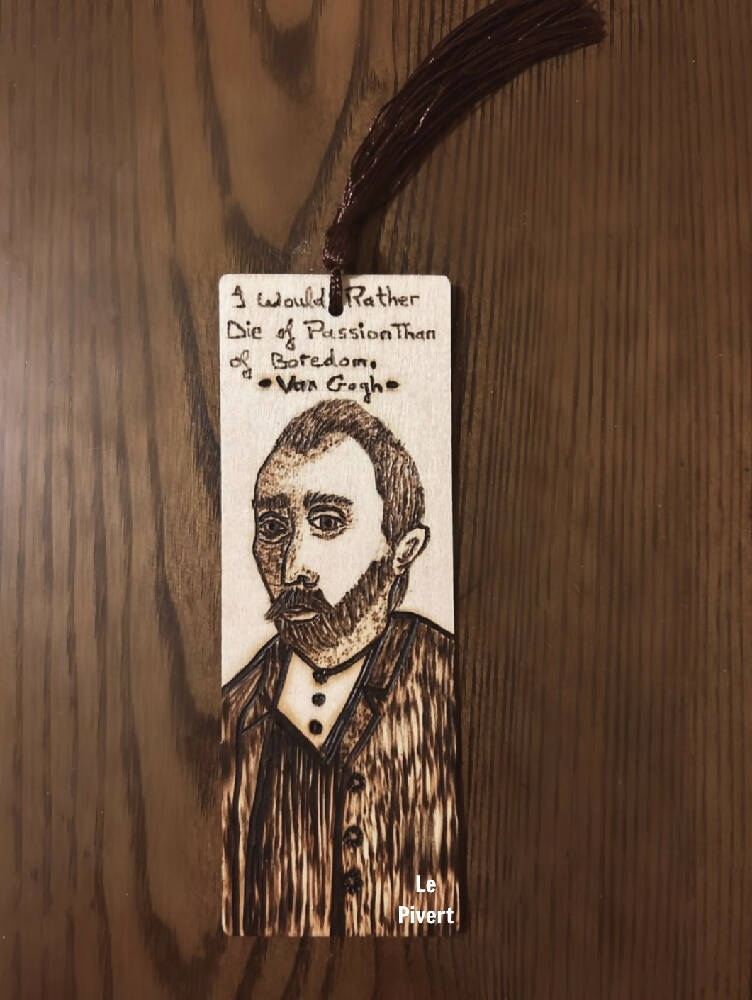 I Would Rather
Die of Passion Than
of Boredom.
•Van Gogh•
Le
Pivert